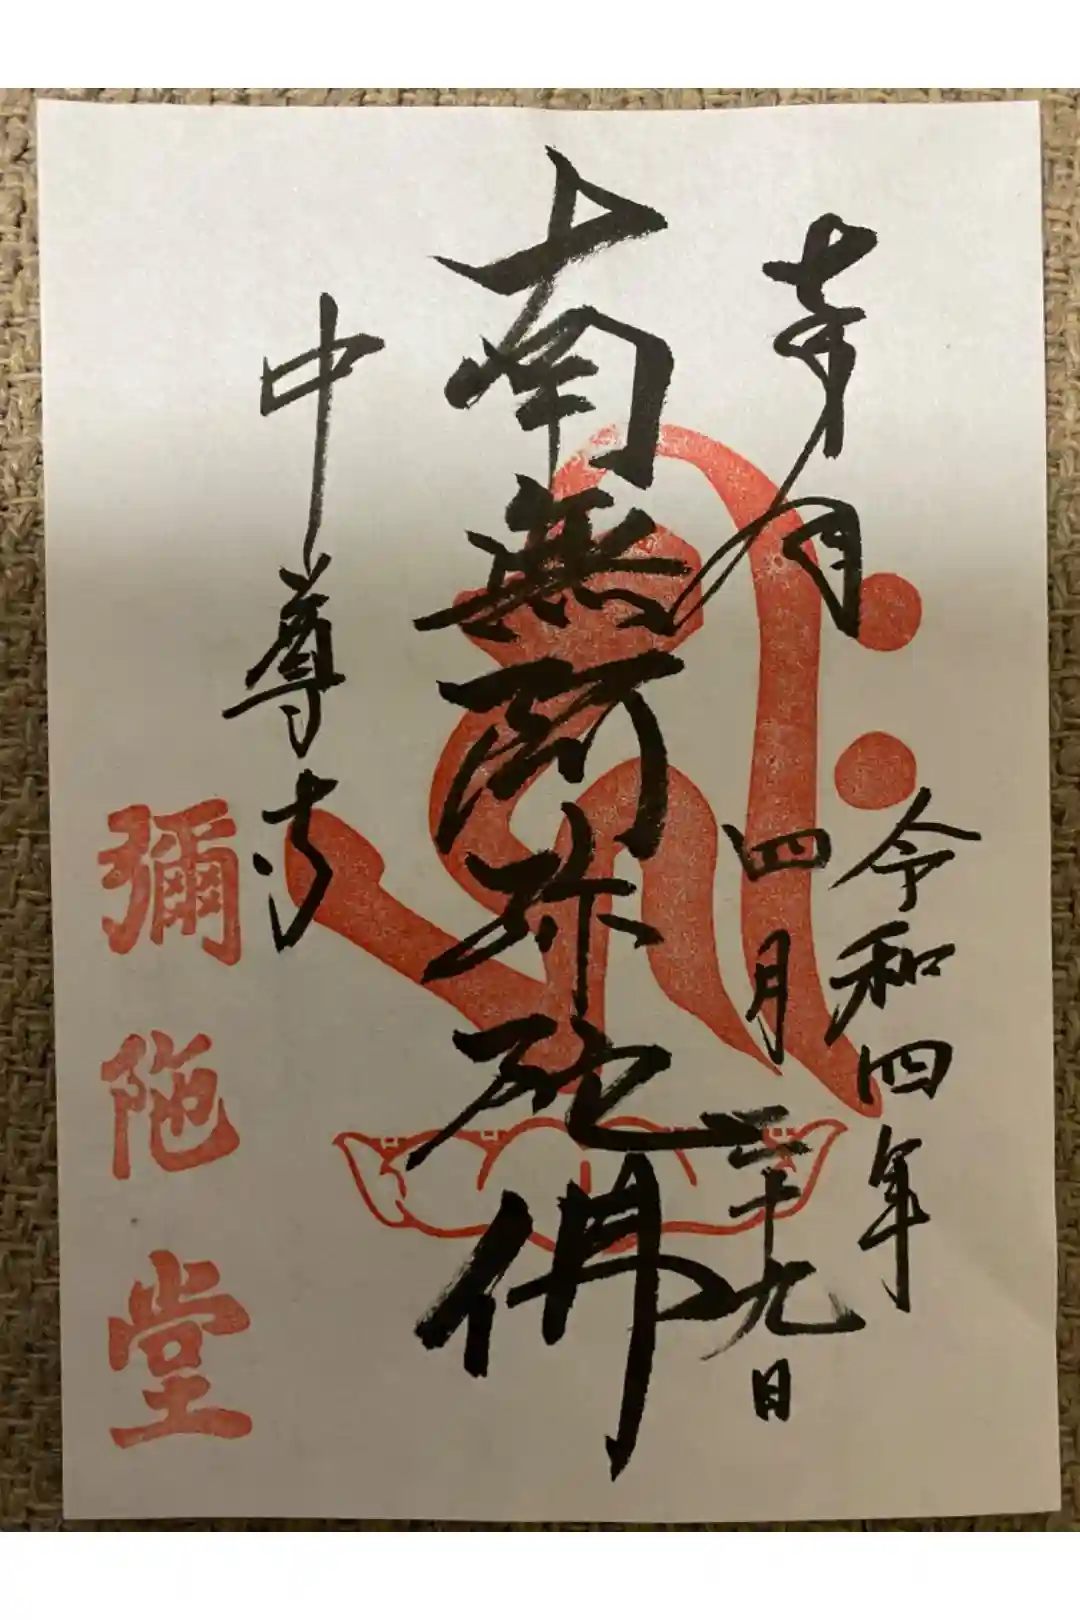 奉拝
令和四年
四月二十九日
南無阿弥陀佛
中尊寺
彌陁堂